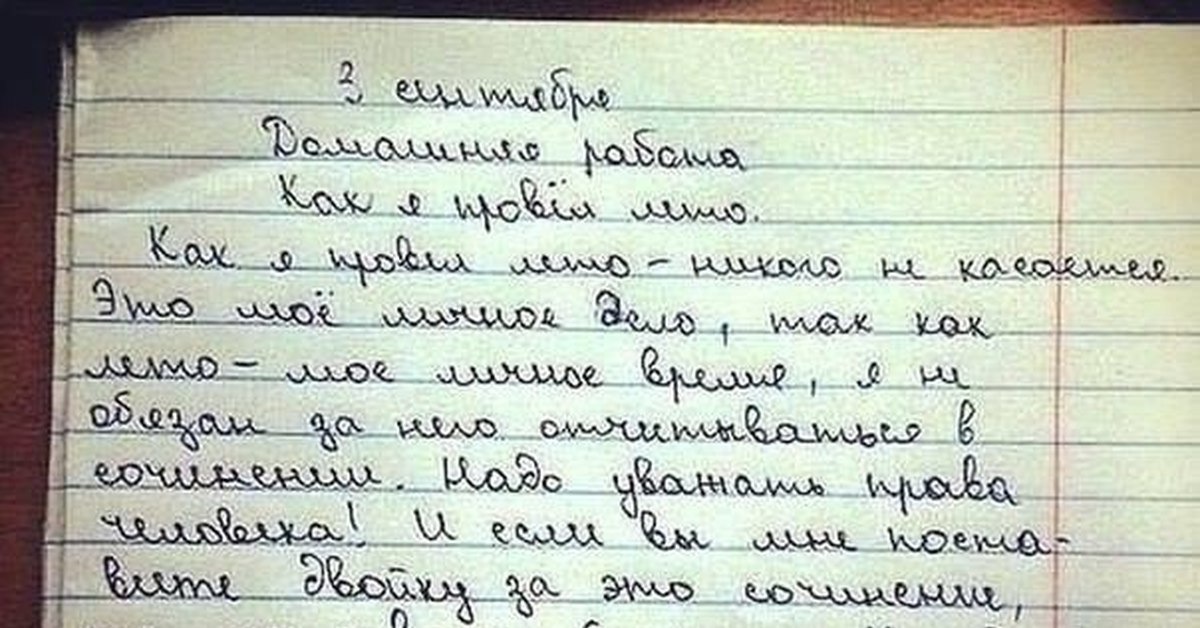 3 сентября
Домашняя работа
Как я провёл лето.
Как я провёл лето – никого не касается.
Это моё личное дело, так как
лето – мое личное время, я не
обязан за него отчитываться в
сочинении. Надо уважать права
человека! И если вы мне поста-
вите двойку за это сочинение,